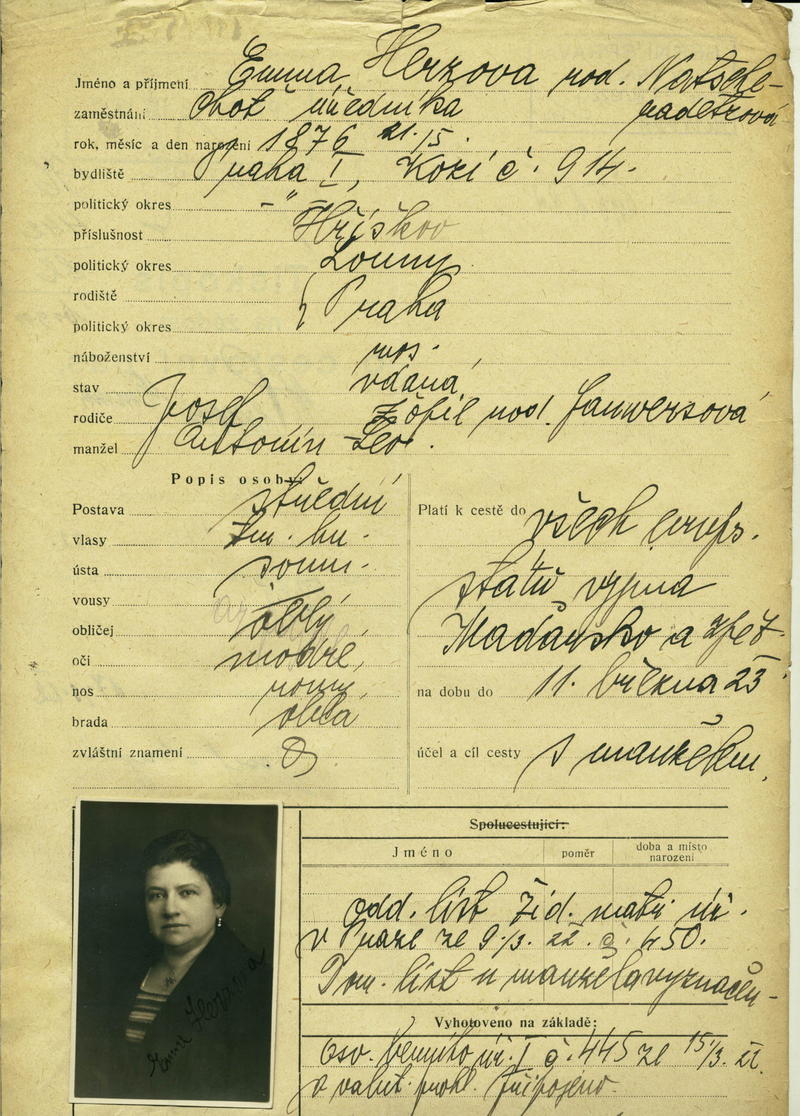 Jméno a příjmení Emma Herzova rod. Natsche-
zaměstnání choť úředníka radetzová
rok, měsíc a den narození 1876 21./5.
bydliště Praha I, Kozí č. 914.
politický okres -"-
příslušnost Hříškov
politický okres Louny
rodiště Praha
politický okres
náboženství mos.
stav vdaná
rodiče Josef Žofie rod.
manžel Antonín Leo.
Popis osoby
Postava střední Platí k cestě do všech evrop.
vlasy tm. hn.
ústa soum. států vyjma
vousy
obličej oblý Maďarsko a zpět
oči modré,
nos na dobu do 11. března 23
brada oblá
zvláštní znamení účel a cíl cesty s manželem,
Spolucestující:
Jméno poměr doba a místo narození
odd. list žid. matr. úř.
v Praze ze 9./3. 22. č. 450.
Dom. list u manžela vyznačen-
Vyhotoveno na základě:
úř. I č. 445 ze 15/3. 22
připojeno.
Emma Herzova